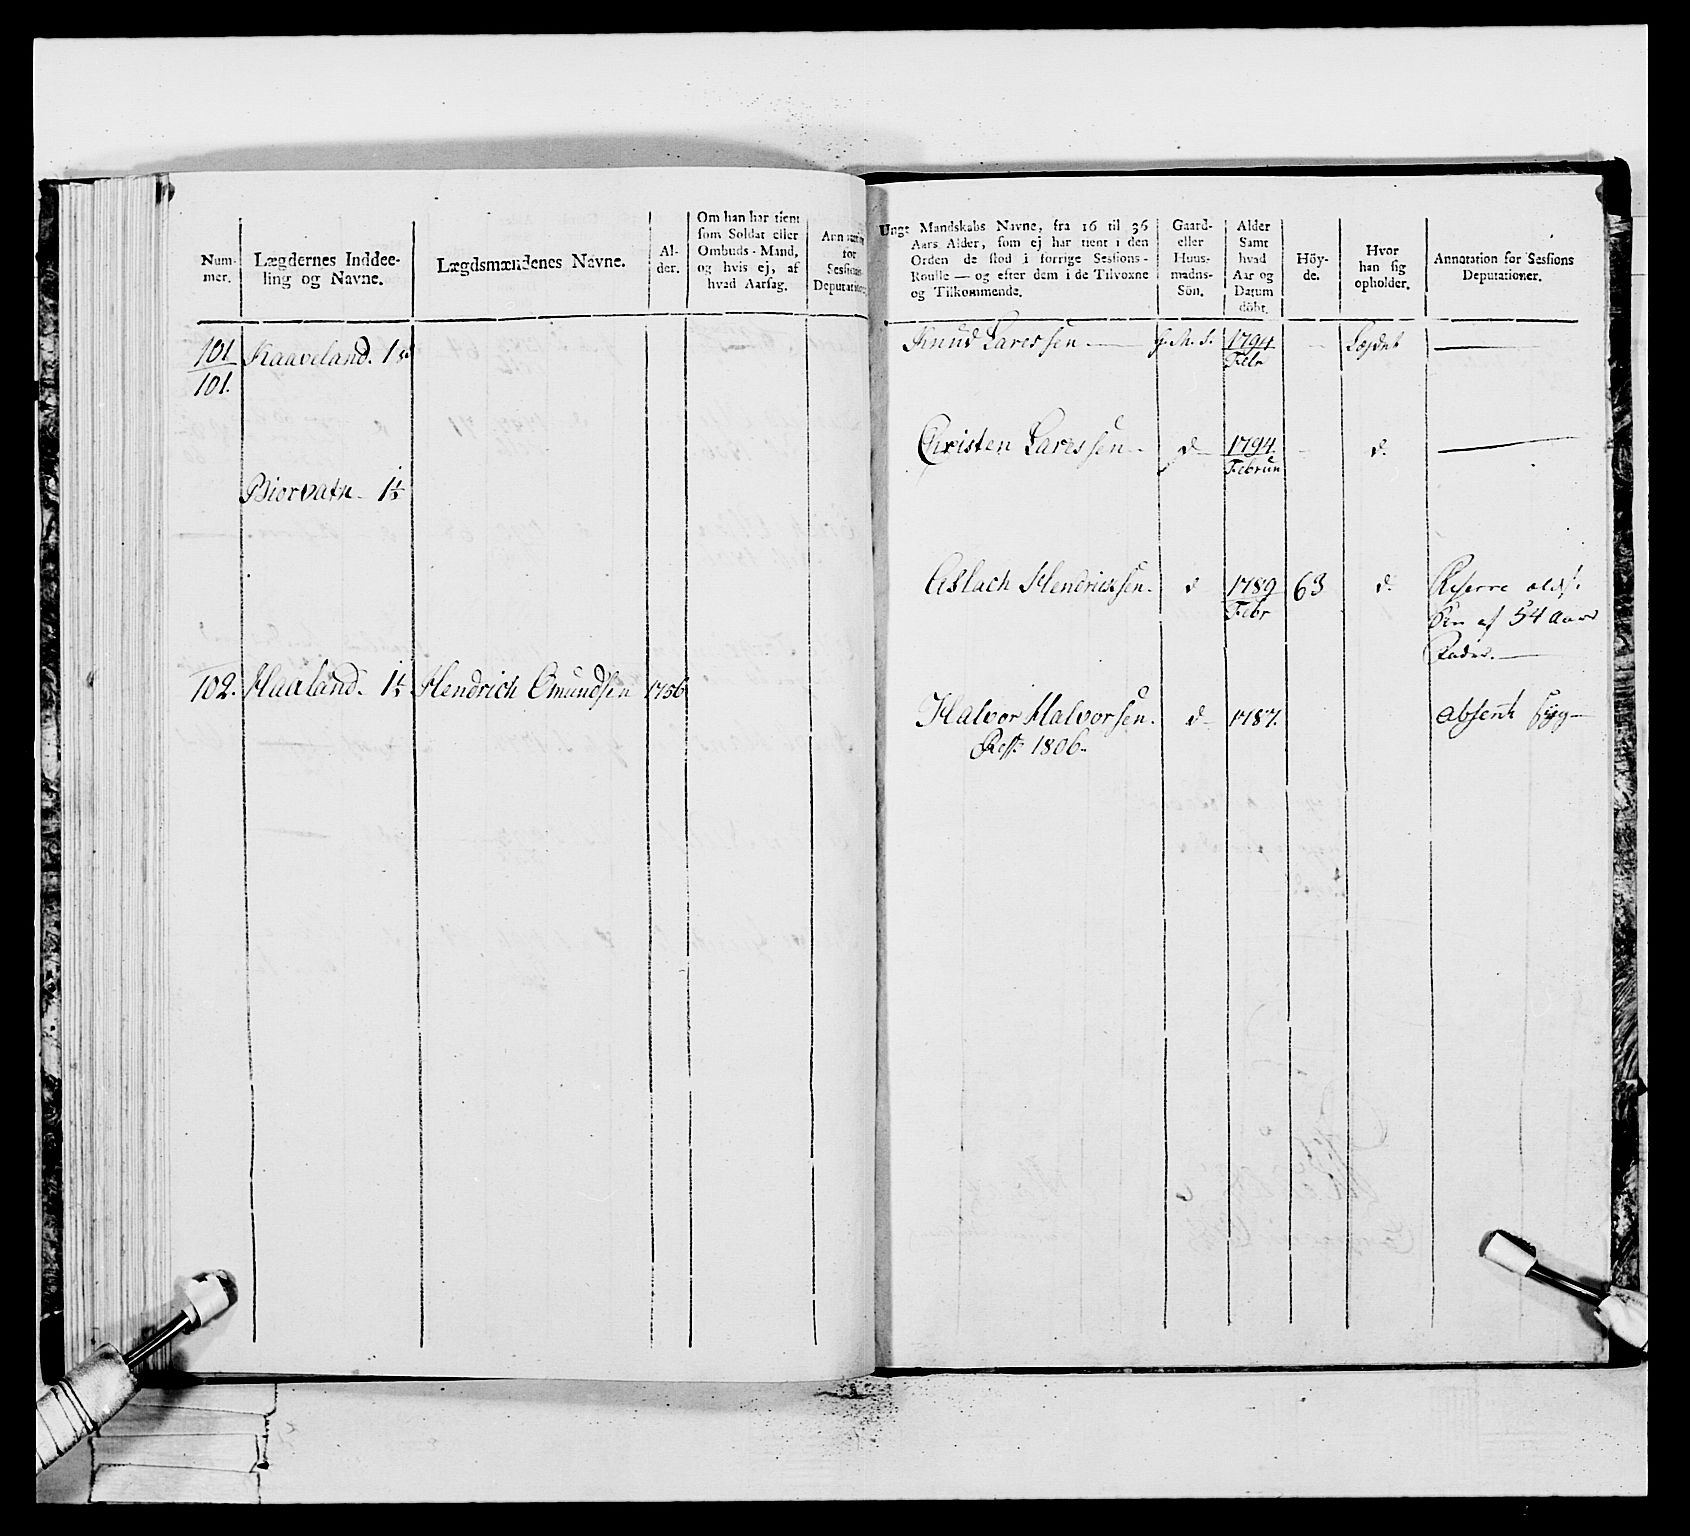 Num-
mer.
Lægdernes Inddee-
ling og Navne.
Lægdsmændenes Navne.
Al-
der.
Om han har tient
som Soldat eller
Ombuds-Mand,
og hvis ej, af
hvad Aarsag.
for
Sessions-
101
101.
Kaaveland. 1
Biorvatn
102. Haaland. Hendrich Omundsen 1756
Unge Mandskabs Navne, fra 16 til 36
Aars Alder, som ej har tient i den
Orden de stod i forrige Sessions-
Roulle — og efter dem i de Tilvoxne
og Tilkommende.
Gaard-
eller
Huus-
mands-
Sön.
Alder
Samt
hvad
Aar og
Datum
döbt.
Höy-
de.
Hvor
han sig
opholder.
Annotation for Sessions
Deputationer.
Knud Laressen — g. M. S. 1794 — Lægdet —
Febr
Christen Laressen — d — 1794 — d. —
Februn
Aslach Hendricksen. d 1789 63 d. Reserve ældst
Febr Sön af 54 aars
Fader. —
Halvor Halvorsen. d — 1787. absent syg —
Rest 1806.